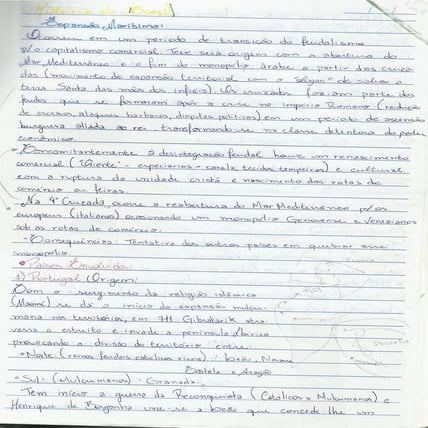 História do Brasil
Expansão Marítima:
Ocorreu em um período de transição do feudalismo
p/o capitalismo comercial. Teve sua origem com a abertura do
Mar Mediterrâneo e o fim do monopólio árabe a partir das cruza
das (movimento de expansão territorial com o "slogan" de salvar a
terra Santa das mãos dos infiéis). As cruzadas foram parte dos
feudos que se formaram após a crise no Império Romano (redução
de escravos, ataques bárbaros, disputas políticas) em um período de ascensão
burguesa aliada ao rei transformando-se na classe detentora do poder
econômico.
Concomitantemente à desintegração feudal houve um renascimento
comercial ("Oriente" - especiarias - canela, tecidos, temperos) e cultural
com a ruptura da unidade cristã e nascimento das rotas de
comércio as feiras.
- Na 4ª Cruzada, ocorre a reabertura do Mar Mediterrâneo p/os
europeus (italianos) ocasionando um monopólio Genovense e Venezianos
sob as rotas de comércio.
- Consequências: Tentativa dos outros países em quebrar esse
monopólio
• Países Envolvidos:
1) Portugal (Origem:
Com o surgimento da religião islâmica
(Maomé) se dá o início da expansão mulçu-
mana nos territórios, em 711 Gibaltarik atra
vessa o estreito e invade a península Ibérica
provocando a divisão do território entre:
• Norte (reinos feudais católicos rivais) : Leão, Navarra
Castela e Aragão
• Sul: (Mulçumanos) - Granada
Tem início a guerra da Reconquista (Católicos x Mulçumanos) e
Henrique de Borgonha une-se a Leão que concede-lhe um